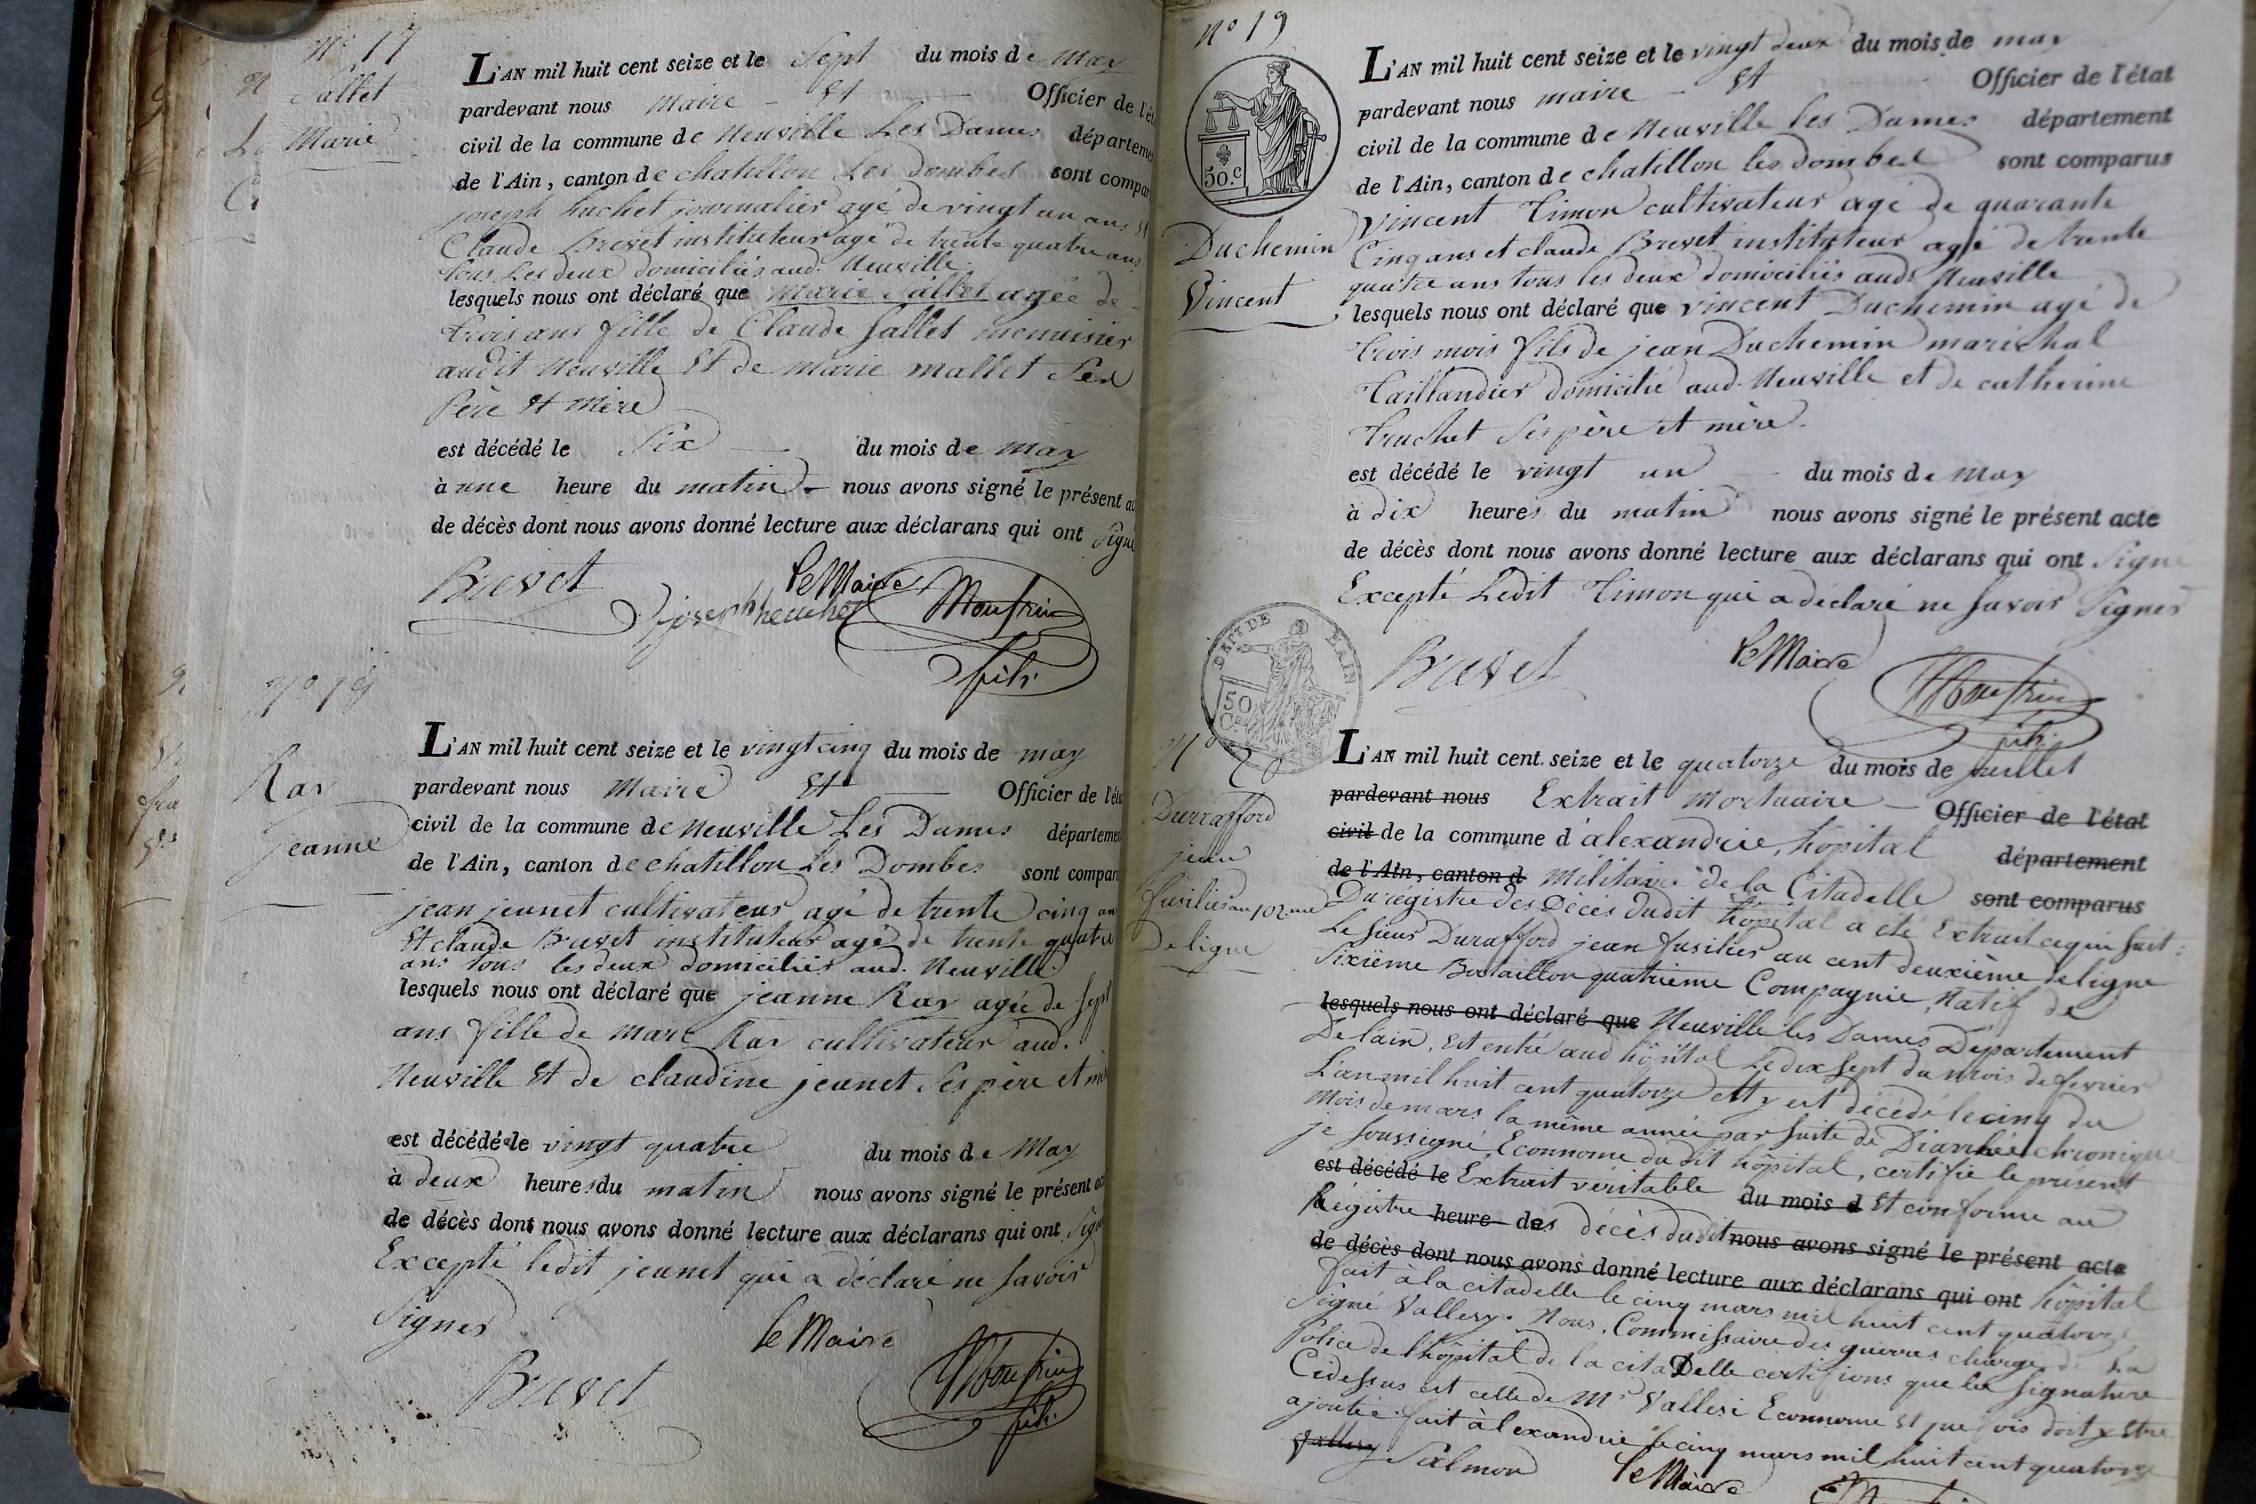 N° 17
Sallet
Marie
L'AN mil huit cent seize et le Sept du mois de may
pardevant nous maire Et Officier de l'ét
civil de la commune de Neuville Les Dames départeme
de l'Ain, canton de chatillon Les dombes sont compar
joseph huchet journalier agé de vingt un ans Et
Claude Brevet instituteur agé de trente quatre ans
tous Les deux domiciliés aud. Neuville.
lesquels nous ont déclaré que Marie Sallet agée de
trois ans fille de Claude Sallet menuisier
audit Neuville Et de marie mallet Ses
Père Et Mère
est décédé le Six du mois de may
à une heure du matin nous avons signé le présent ac
de décès dont nous avons donné lecture aux déclarans qui ont Signé
Brevet joseph heuchet le Maire Monfrin
fils
Ray
jeanne
L'AN mil huit cent seize et le vingt cinq du mois de may
pardevant nous Maire Et Officier de l'éta
civil de la commune de Neuville Les Dames départemen
de l'Ain, canton de chatillon Les Dombes sont compar
jean jeunet cultivateur agé de trente cinq ans
Et claude Brevet instituteur agé de trente quatre
ans tous les deux domiciliés aud. Neuville.
lesquels nous ont déclaré que jeanne Ray agée de sept
ans fille de Marc Ray cultivateur aud.
Neuville Et de claudine jeunet Ses père et mè
est décédé le vingt quatre du mois de May
à deux heures du matin nous avons signé le présent ac
de décès dont nous avons donné lecture aux déclarans qui ont Signé
Excepté ledit jeunet qui a déclaré ne savoir
Signer
Brevet le Maire Monfrin
fils
N° 19
50.c
Duchemin
Vincent
L'AN mil huit cent seize et le vingt deux du mois de may
pardevant nous maire Et Officier de l'état
civil de la commune de Neuville les Dames département
de l'Ain, canton de chatillon les dombes sont comparus
Vincent Timon cultivateur agé de quarante
Cinq ans et claude Brevet instituteur agé de trente
quatre ans tous les deux domiciliés aud. Neuville
lesquels nous ont déclaré que Vincent Duchemin agé de
trois mois fils de jean Duchemin maréchal
Taillandier domicilié aud. Neuville et de catherine
Truchet Ses père et mère.
est décédé le vingt un du mois de May
à dix heures du matin nous avons signé le présent acte
de décès dont nous avons donné lecture aux déclarans qui ont Signé
Excepté Ledit Timon qui a déclaré ne savoir Signer
Brevet le Maire Monfrin
fils
50
N° 20
Durrafford
jean
fusilier au 102.me
De ligne
L'AN mil huit cent seize et le quatorze du mois de juillet
pardevant nous Extrait Mortuaire Officier de l'état
civil de la commune d'alexandrie, hôpital département
de l'Ain, canton d Militaire de la Citadelle sont comparus
Du régistre des Décès dudit hôpital a été Extrait ce qui suit:
Le sieur Durafford jean fusilier au cent deuxième de ligne
Sixième Bataillon quatrième Compagnie, Natif de
lesquels nous ont déclaré que Neuville les Dames Département
De l'ain, est entré aud hôpital Le dix sept du mois de fevrier
L'an mil huit cent quatorze et y est décédé le cinq du
Mois de mars la même année par suite de Diarrhée chronique
je soussigné, Econnome du dit hôpital, certifie le présent
est décédé le Extrait véritable du mois d Et conforme au
Régistre heure des décès dudit nous avons signé le présent acte
de décès dont nous avons donné lecture aux déclarans qui ont hôpital
fait à la citadelle le cinq mars mil huit cent quatorze
Signé Vallesy. Nous, Commissaire des guerres chargé de la
Police de l'hôpital de la citaDelle certifions que la signature
Cidessus est celle de Mr Vallesi Econnome Et que fois doit y être
ajoutée. fait à alexandrie le cinq mars mil huit cent quatorze
Salmon le Maire